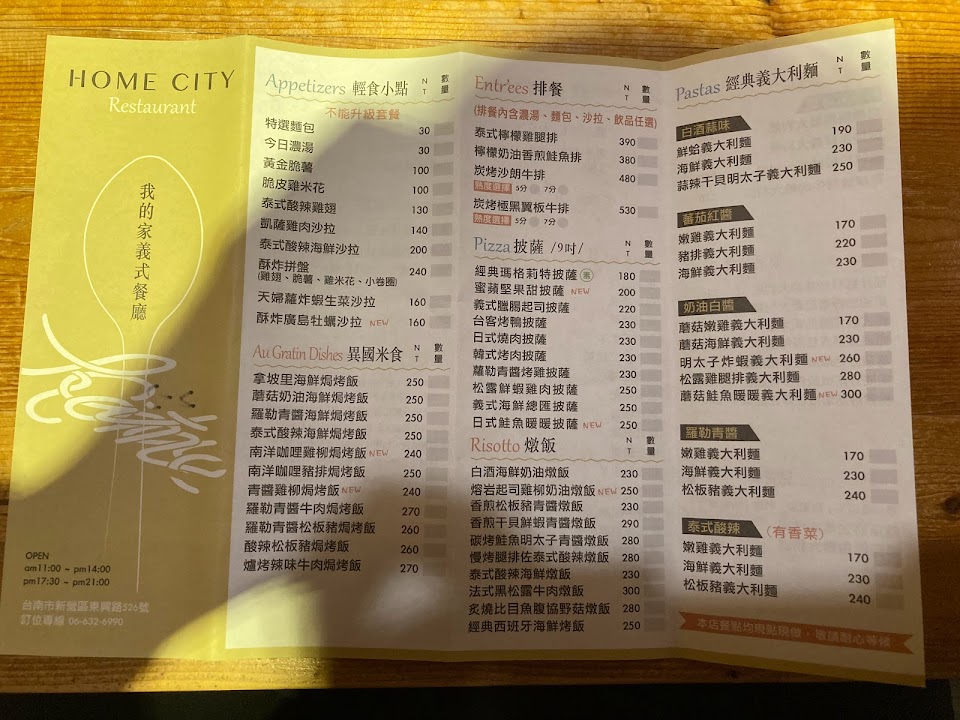 HOME CITY
Restaurant
我的家義式餐廳
OPEN
am11:00 ~ pm14:00
pm17:30 ~ pm21:00
台南市新營區東興路526號
訂位專線 06-632-6990
Appetizers 輕食小點 NT 數量
不能升級套餐
特選麵包 30
今日濃湯 30
黃金脆薯 100
脆皮雞米花 100
泰式酸辣雞翅 130
凱薩雞肉沙拉 140
泰式酸辣海鮮沙拉 200
酥炸拼盤 240
(雞翅、脆薯、雞米花、小卷圈)
天婦蘿炸蝦生菜沙拉 160
酥炸廣島牡蠣沙拉 NEW 160
Au Gratin Dishes 異國米食 NT 數量
拿坡里海鮮焗烤飯 250
蘑菇奶油海鮮焗烤飯 250
羅勒青醬海鮮焗烤飯 250
泰式酸辣海鮮焗烤飯 250
南洋咖哩雞柳焗烤飯 NEW 240
南洋咖哩豬排焗烤飯 250
青醬雞柳焗烤飯 NEW 240
羅勒青醬牛肉焗烤飯 270
羅勒青醬松板豬焗烤飯 260
酸辣松板豬焗烤飯 260
爐烤辣味牛肉焗烤飯 270
Entr'ees 排餐 NT 數量
(排餐內含濃湯、麵包、沙拉、飲品任選)
泰式檸檬雞腿排 390
檸檬奶油香煎鮭魚排 380
炭烤沙朗牛排 480
熟度選擇 5分 7分
炭烤極黑翼板牛排 530
熟度選擇 5分 7分
Pizza 披薩 /9吋/ NT 數量
經典瑪格莉特披薩 素 180
蜜蘋堅果甜披薩 NEW 200
義式臘腸起司披薩 220
台客烤鴨披薩 230
日式燒肉披薩 230
韓式烤肉披薩 230
蘿勒青醬烤雞披薩 230
松露鮮蝦雞肉披薩 250
義式海鮮總匯披薩 250
日式鮭魚暖暖披薩 NEW 250
Risotto 燉飯 NT 數量
白酒海鮮奶油燉飯 230
熔岩起司雞柳奶油燉飯 NEW 250
香煎松板豬青醬燉飯 230
香煎干貝鮮蝦青醬燉飯 290
碳烤鮭魚明太子青醬燉飯 280
慢烤腿排佐泰式酸辣燉飯 280
泰式酸辣海鮮燉飯 230
法式黑松露牛肉燉飯 300
炙燒比目魚腹協野菇燉飯 280
經典西班牙海鮮烤飯 250
Pastas 經典義大利麵 NT 數量
白酒蒜味
鮮蛤義大利麵 190
海鮮義大利麵 230
蒜辣干貝明太子義大利麵 250
蕃茄紅醬
嫩雞義大利麵 170
豬排義大利麵 220
海鮮義大利麵 230
奶油白醬
蘑菇嫩雞義大利麵 170
蘑菇海鮮義大利麵 230
明太子炸蝦義大利麵 NEW 260
松露雞腿排義大利麵 280
蘑菇鮭魚暖暖義大利麵 NEW 300
羅勒青醬
嫩雞義大利麵 170
海鮮義大利麵 230
松板豬義大利麵 240
泰式酸辣 (有香菜)
嫩雞義大利麵 170
海鮮義大利麵 230
松板豬義大利麵 240
本店餐點均現點現做，敬請耐心等候